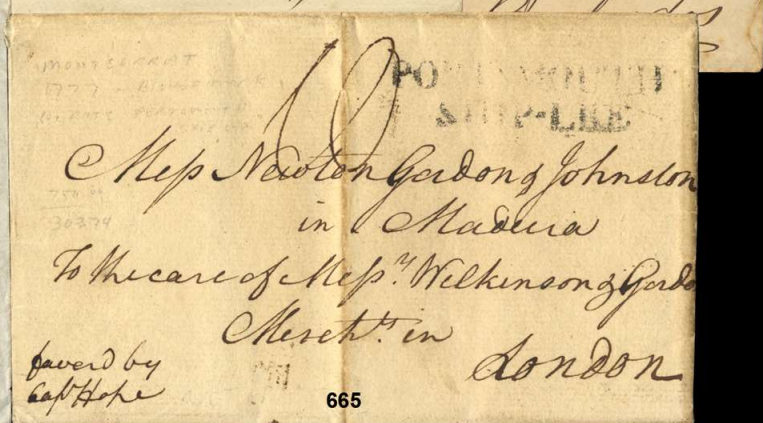 MONTSERRAT
1777
PORTSMOUTH
SHIP-LRE
10
Mess Newton Gordon & Johnston
in Madeira
To the care of Mess.rs Wilkinson & Gordo
Merch.ts in
London
faverd by
Capt Hope
750.00
30374
665